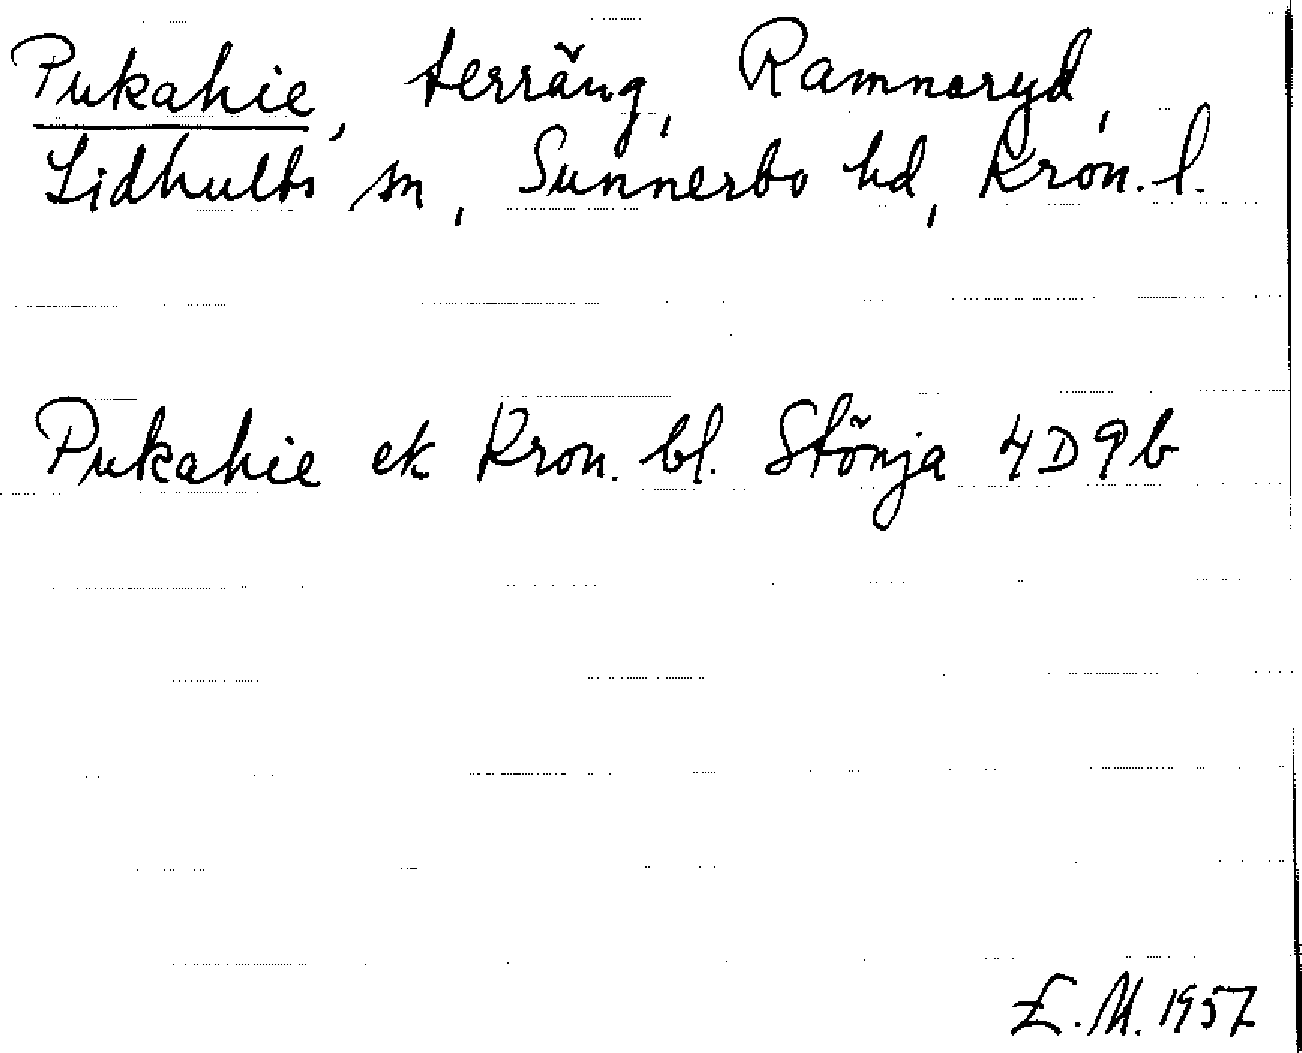 Pukahie, terräng, Ramnaryd,
Lidhults sn, Sunnerbo hd, Kron. l.
Pukahie ek Kron. bl. Stönja 4D9b
E.M. 1957